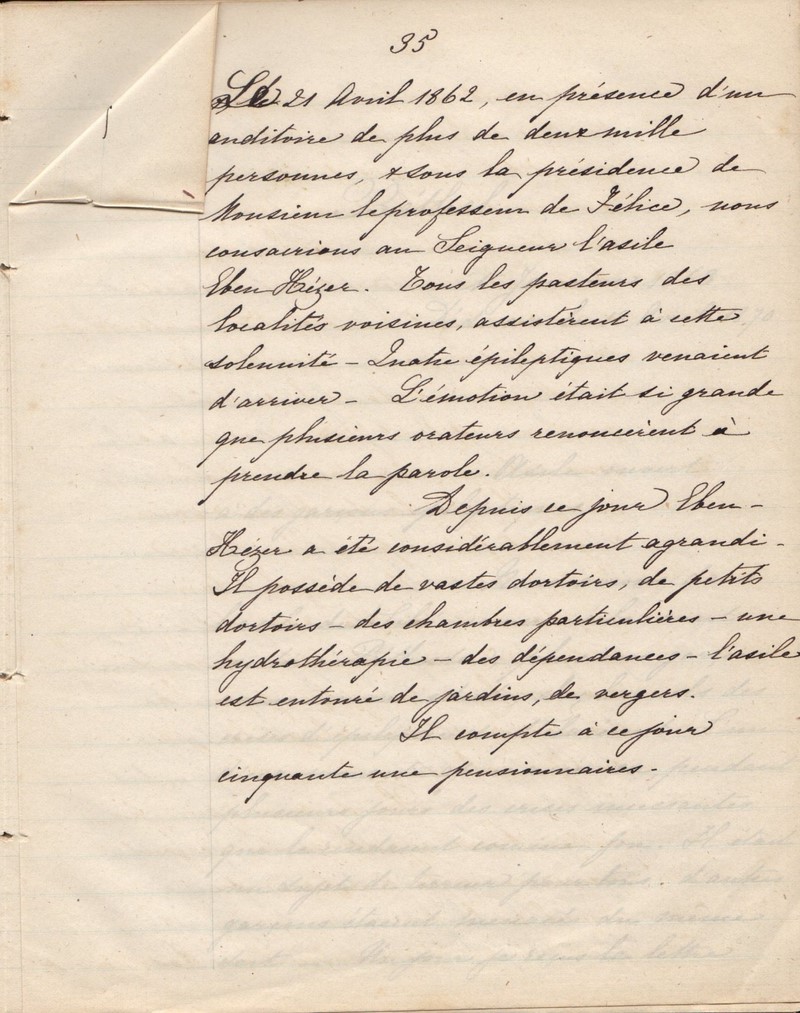 35
Le 21 Avril 1862, en présence d'un
auditoire de plus de deux mille
personnes, & sous la présidence de
Monsieur le professeur de Félice, nous
consacrions au Seigneur l'asile
Eben Hézer. Tous les pasteurs des
localités voisines, assistèrent à cette
solennité - Quatre épileptiques venaient
d'arriver - L'émotion était si grande
que plusieurs orateurs renoncèrent à
prendre la parole.
Depuis ce jour Eben-
Hézer a été considérablement agrandi -
Il possède de vastes dortoirs, de petits
dortoirs - des chambres particulières - une
hydrothérapie - des dépendances - l'asile
est entouré de jardins, de vergers.
Il compte à ce jour
cinquante une pensionnaires -